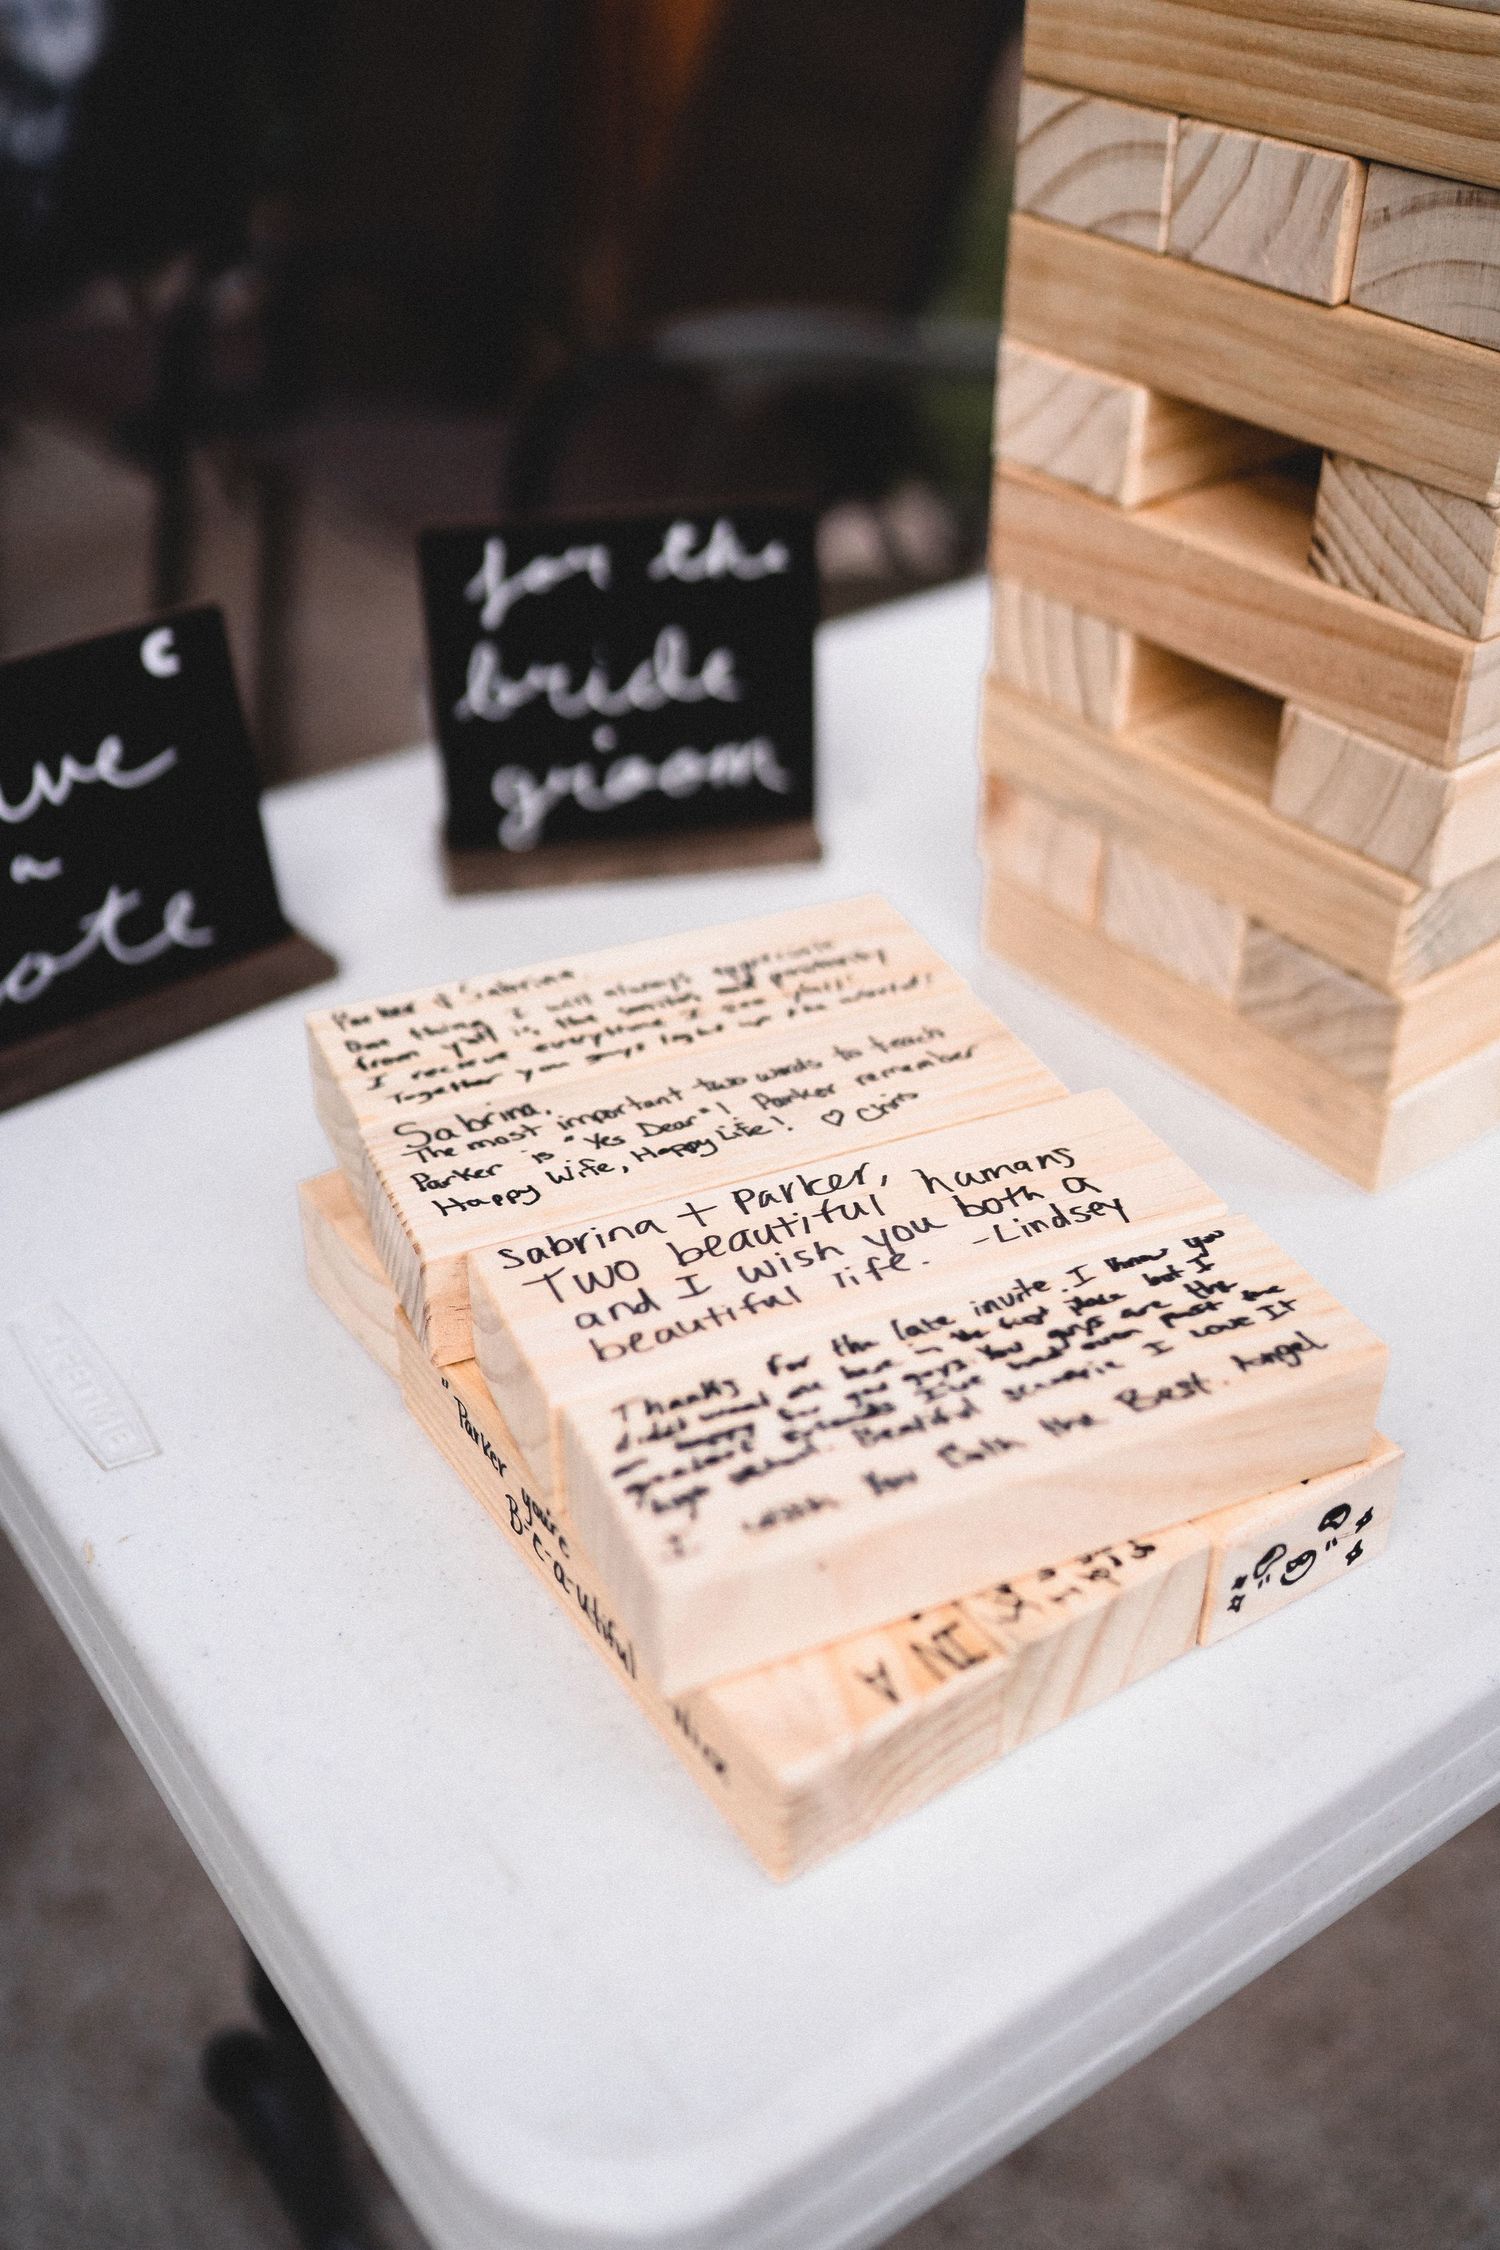 for the
bride
groom
a
Parker & Sabrina,
One thing I will always appreciate
from y'all is the smiles and positivity
I receive everytime I see y'all!
Together you guys light up the world!
Sabrina,
The most important two words to teach
Parker is "Yes Dear"! Parker remember
Happy Wife, Happy Life! ♡ Chris
Sabrina + Parker,
Two beautiful humans
and I wish you both a
beautiful life. -Lindsey
Thanks for the late invite I know you
didn't want me here in the first place but I
happy for you guys. You guys are the
greatest friends I've had even past the
high school. Beautiful scenario I love It
wish You Both the Best. Angel
"Parker you're
B-e-a-utiful
IN A